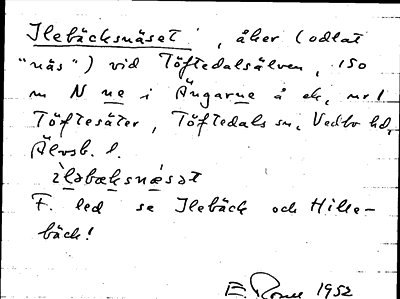 Ilebäcksnäset, åker (odlat
"näs") vid Töftedalsälven, 150
m N ne i Ängarne å ek. nr 1
Töftesäter, Töftedals sn, Vedbo hd,
Älvsb. l.
ìləbæksnæ̀sət
F. led se Ilebäck och Hille-
bäck!
1952